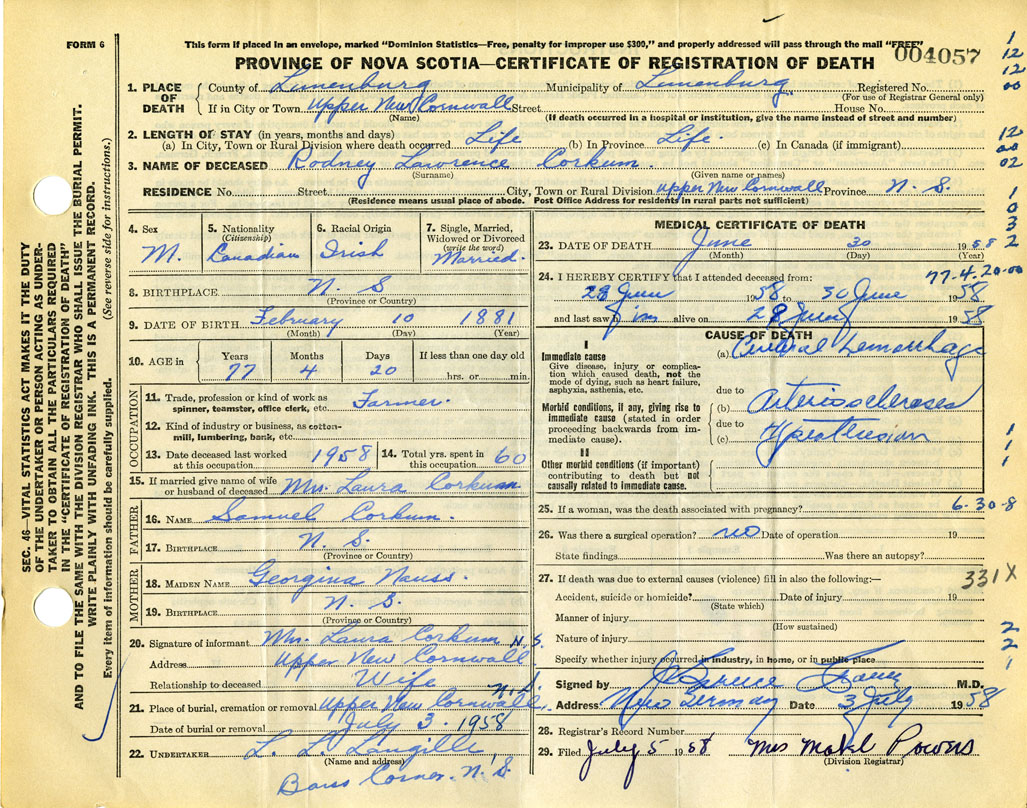 FORM 6
This form if placed in an envelope, marked "Dominion Statistics—Free, penalty for improper use $300," and properly addressed will pass through the mail "FREE"
004057
PROVINCE OF NOVA SCOTIA—CERTIFICATE OF REGISTRATION OF DEATH
1. PLACE OF DEATH
County of Lunenburg Municipality of Lunenburg Registered No.
(For use of Registrar General only)
If in City or Town Upper New Cornwall Street House No.
(Name) (If death occurred in a hospital or institution, give the name instead of street and number)
2. LENGTH OF STAY (in years, months and days)
(a) In City, Town or Rural Division where death occurred Life (b) In Province Life. (c) In Canada (if immigrant)
3. NAME OF DECEASED Rodney Lawrence Corkum.
(Surname) (Given name or names)
RESIDENCE No. Street City, Town or Rural Division Upper New Cornwall Province N. S.
(Residence means usual place of abode. Post Office Address for residents in rural parts not sufficient)
4. Sex
M.
5. Nationality
(Citizenship)
Canadian
6. Racial Origin
Irish
7. Single, Married, Widowed or Divorced
(write the word)
Married.
8. BIRTHPLACE N. S
(Province or Country)
9. DATE OF BIRTH February 10 1881
(Month) (Day) (Year)
10. AGE in
Years Months Days If less than one day old
77 4 20 hrs. or min.
OCCUPATION
11. Trade, profession or kind of work as spinner, teamster, office clerk, etc. Farmer.
12. Kind of industry or business, as cotton-mill, lumbering, bank, etc.
13. Date deceased last worked at this occupation 1958
14. Total yrs. spent in this occupation 60
15. If married give name of wife or husband of deceased Mrs. Laura Corkum
FATHER
16. NAME Samuel Corkum.
17. BIRTHPLACE N. S.
(Province or Country)
MOTHER
18. MAIDEN NAME Georgina Nauss.
19. BIRTHPLACE N. S.
(Province or Country)
20. Signature of informant Mrs. Laura Corkum N. S.
Address Upper New Cornwall
Relationship to deceased Wife
21. Place of burial, cremation or removal Upper New Cornwall, N. S.
Date of burial or removal July 3. 1958
22. UNDERTAKER L. L. Langille,
(Name and address)
Barss Corner. N. S.
MEDICAL CERTIFICATE OF DEATH
23. DATE OF DEATH June 30 1958
(Month) (Day) (Year)
77.4.20-00
24. I HEREBY CERTIFY that I attended deceased from:
29 June 1958 to 30 June 1958
and last saw him alive on 29 June 1958
CAUSE OF DEATH
I
Immediate cause
Give disease, injury or complication which caused death, not the mode of dying, such as heart failure, asphyxia, asthenia, etc.
(a) Cerebral hemorrhage
due to
Morbid conditions, if any, giving rise to immediate cause (stated in order proceeding backwards from immediate cause).
(b) Arteriosclerosis
due to
(c) Hypertension
II
Other morbid conditions (if important) contributing to death but not causally related to immediate cause.
25. If a woman, was the death associated with pregnancy?
6-30-8
26. Was there a surgical operation? no Date of operation 19
State findings Was there an autopsy?
27. If death was due to external causes (violence) fill in also the following:—
331X
Accident, suicide or homicide? Date of injury 19
(State which)
Manner of injury
(How sustained)
Nature of injury
Specify whether injury occurred in industry, in home, or in public place
Signed by M.D.
Address New Germany Date 3 July 1958
28. Registrar's Record Number
29. Filed July 5 1958 Mrs Mabel Powers
(Division Registrar)
SEC. 46—VITAL STATISTICS ACT MAKES IT THE DUTY
OF THE UNDERTAKER OR PERSON ACTING AS UNDER-
TAKER TO OBTAIN ALL THE PARTICULARS REQUIRED
IN THE "CERTIFICATE OF REGISTRATION OF DEATH"
AND TO FILE THE SAME WITH THE DIVISION REGISTRAR WHO SHALL ISSUE THE BURIAL PERMIT.
WRITE PLAINLY WITH UNFADING INK. THIS IS A PERMANENT RECORD.
Every item of information should be carefully supplied. (See reverse side for instructions.)
1
12
12
00
12
00
02
1
0
3
2
1
1
1
2
2
1